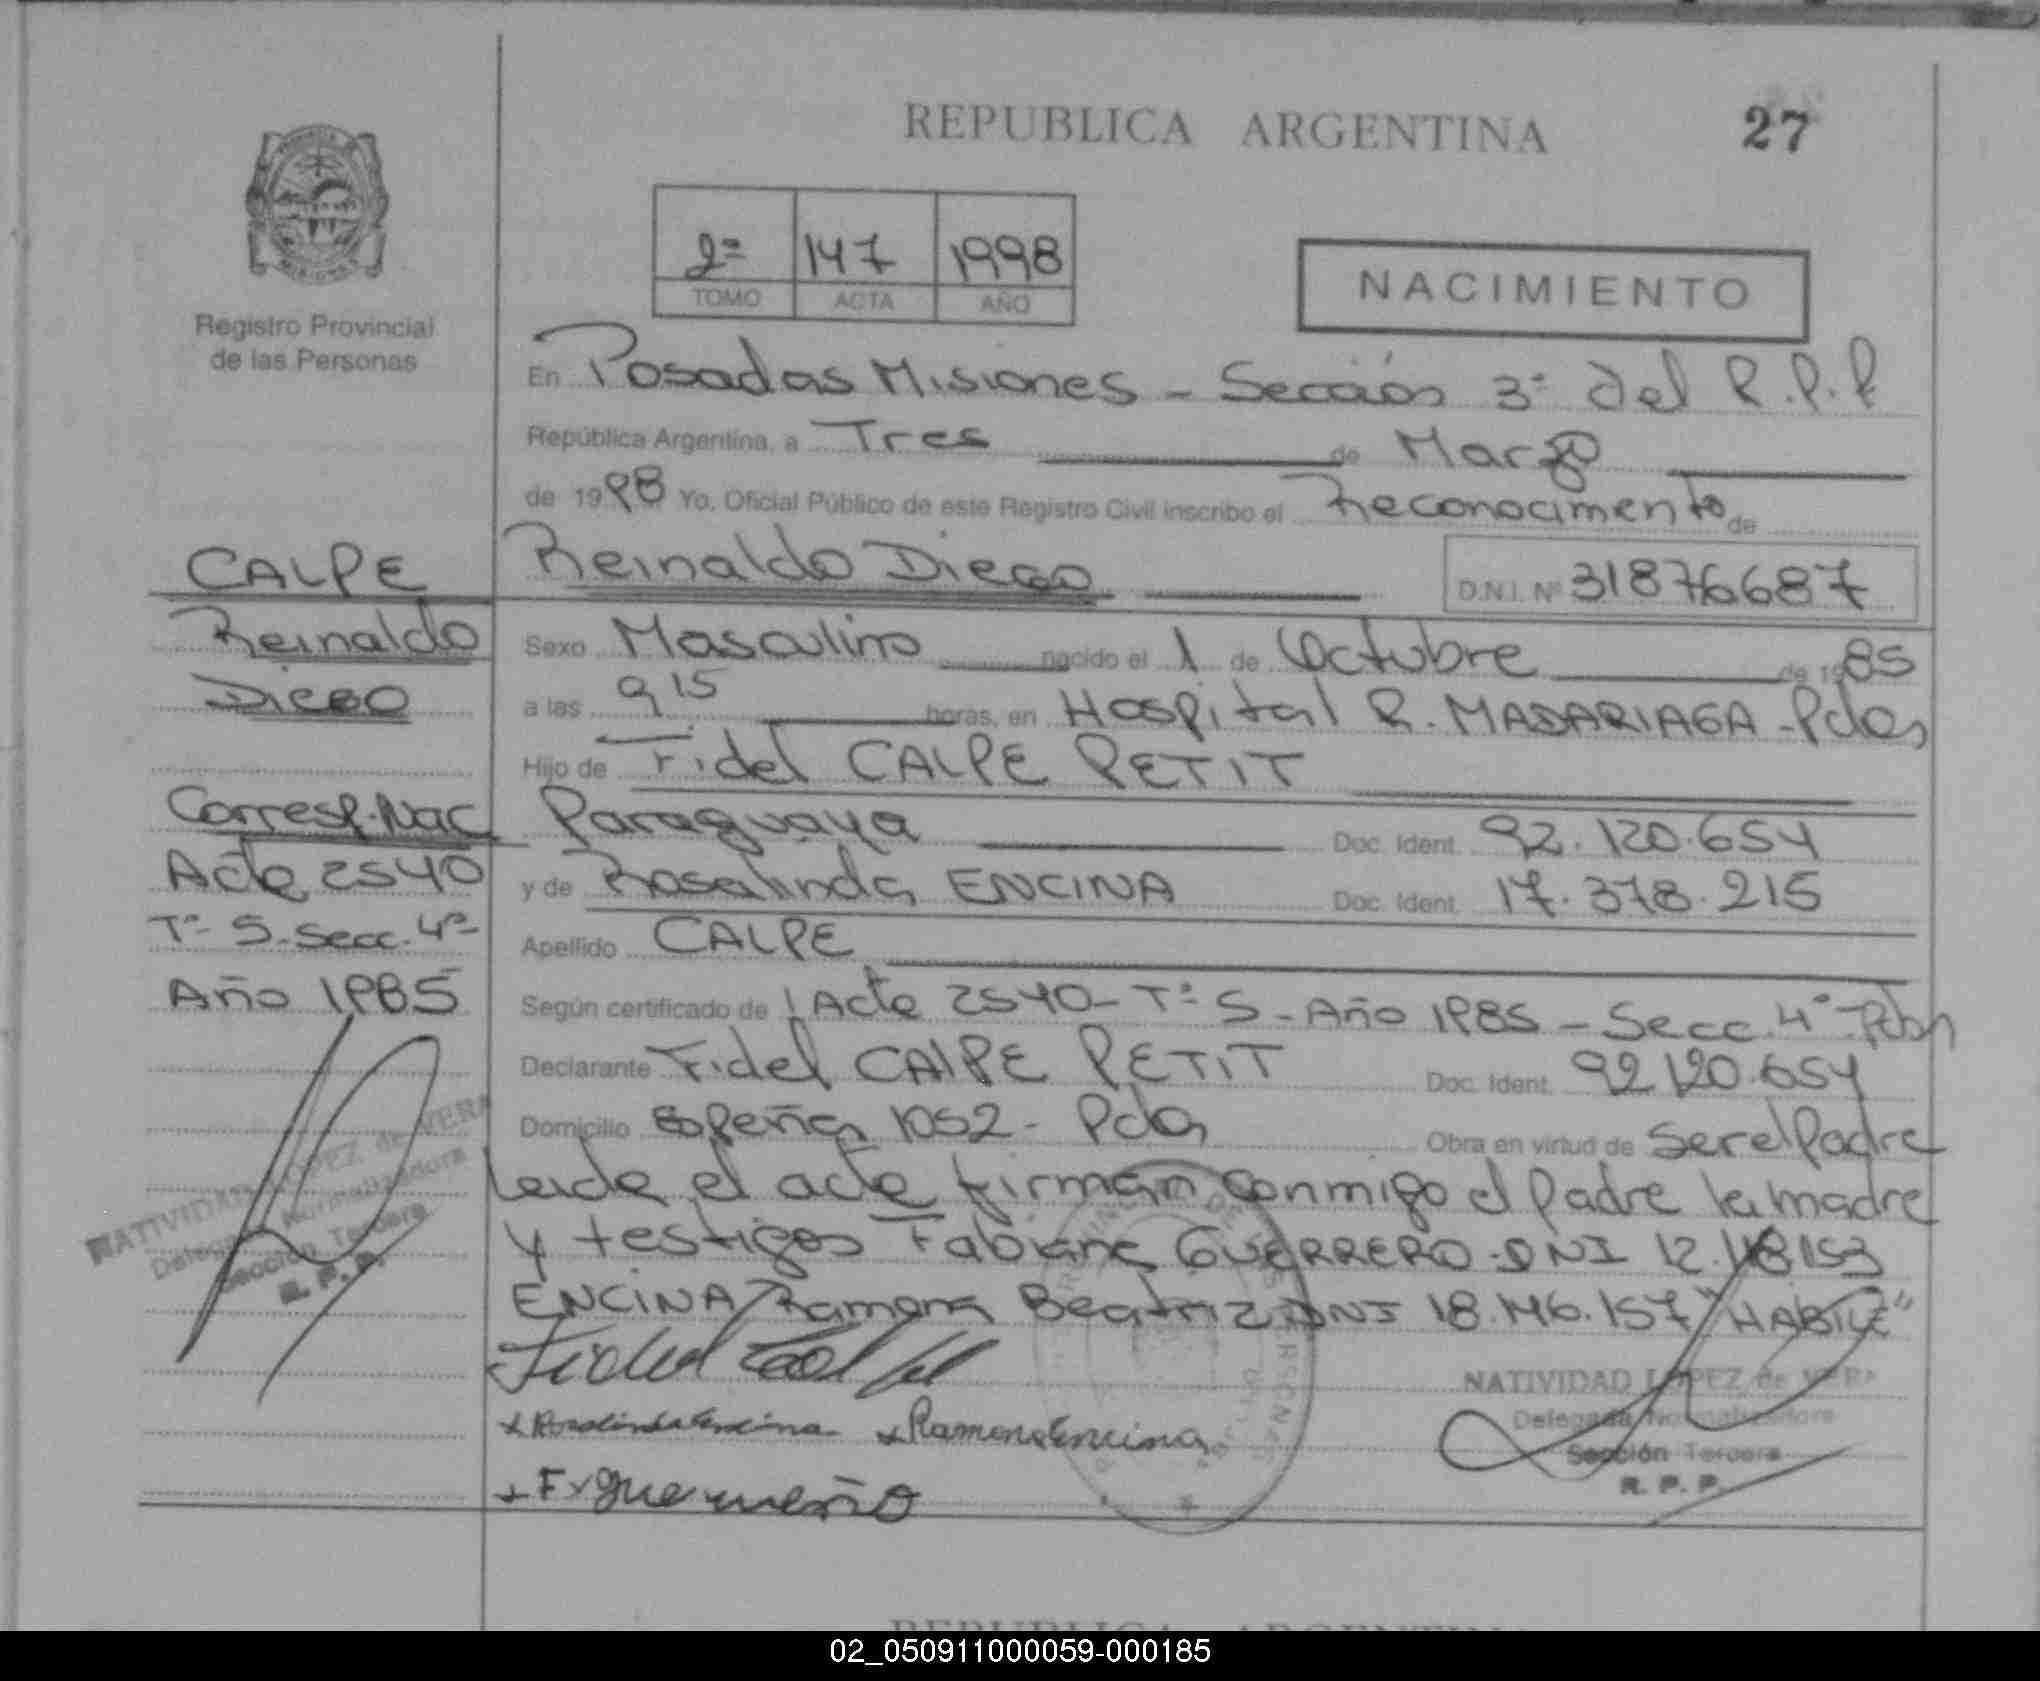 REPUBLICA ARGENTINA
27
2º 147 1998
TOMO ACTA AÑO
NACIMIENTO
Registro Provincial
de las Personas
En Posadas Misiones - Sección 3º del R.P.P
República Argentina, a Tres de Marzo
de 1998 Yo, Oficial Público de este Registro Civil inscribo el Reconocimento de
Reinaldo Diego D.N.I. Nº 31876687
Sexo Masculino nacido el 1 de Octubre de 1985
a las 9 15 horas, en Hospital R. MADARIAGA - Pdas
Hijo de Fidel CALPE PETIT
Paraguaya Doc. Ident. 92.120.654
y de Rosalinda ENCINA Doc. Ident. 17.378.215
Apellido CALPE
Según certificado de Acta 2540 - Tº 5 - Año 1985 - Secc. 4º - Pdas
Declarante Fidel CALPE PETIT Doc. Ident. 92120.654
Domicilio España 1052 - Pdas Obra en virtud de Ser el Padre
Leida el acta firman conmigo el Padre la madre
y testigos Fabiana GUERRERO DNI 12.118153
ENCINA Ramona Beatriz DNI 18.146.157 "HABILE"
CALPE
Reinaldo
Diego
Corresp. Nac
Acta 2540
Tº 5 - Secc. 4º
Año 1985
NATIVIDAD LOPEZ de VERA
Delegada Normalizadora
Sección Tercera
R. P. P.
Fidel
x Rosalinda Encina x Ramona Encina
NATIVIDAD LOPEZ de VERA
Delegada Normalizadora
Sección Tercera
R. P. P.
REPUBLICA ARGENTINA
02_050911000059-000185